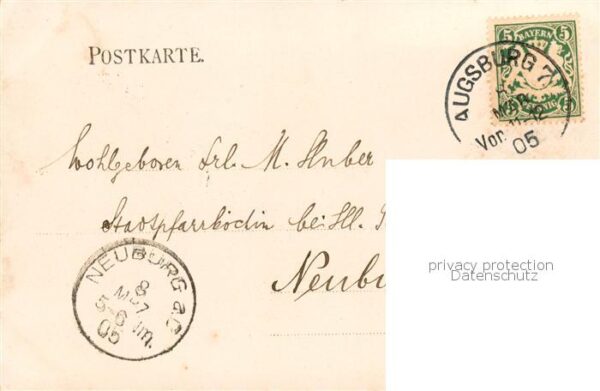 POSTKARTE.
5 BAYERN 5
AUGSBURG 7
Vor.
05
Wohlgeboren Frl. M. Huber
Stadtpfarrköchin bei Hl.
Neubu
NEUBURG a.D.
8
5-6 Nm.
05
privacy protection
Datenschutz